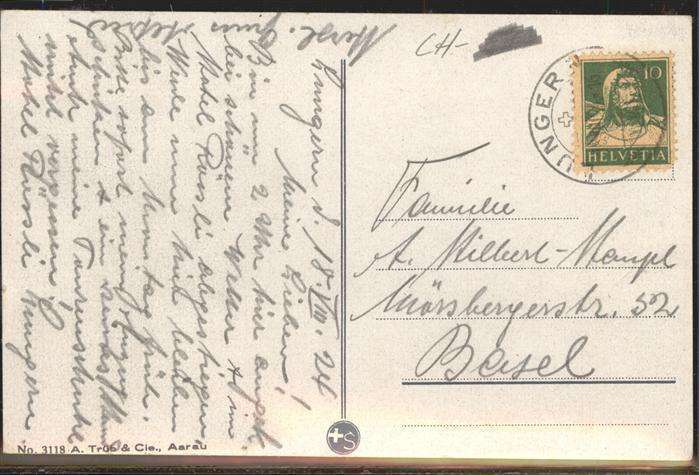 Lungern d. 18. VIII. 24
Meine Lieben!
Bin um 2 Uhr hier angek.
bei schönem Wetter & im
Hotel Rössli abgestiegen.
Werde nun hier bleiben
bis am früh.
Bitte sofort mein
schicken & ein
auch meine Turnschuhe
nicht vergessen,
Hotel Rössli Lungern
Herzl. Gruss
CH-
LUNGERN
10
HELVETIA
Familie
A. Hilbert-Stampl
Mörsbergerstr. 52
Basel
+S
No. 3118 A. Trüb & Cie., Aarau